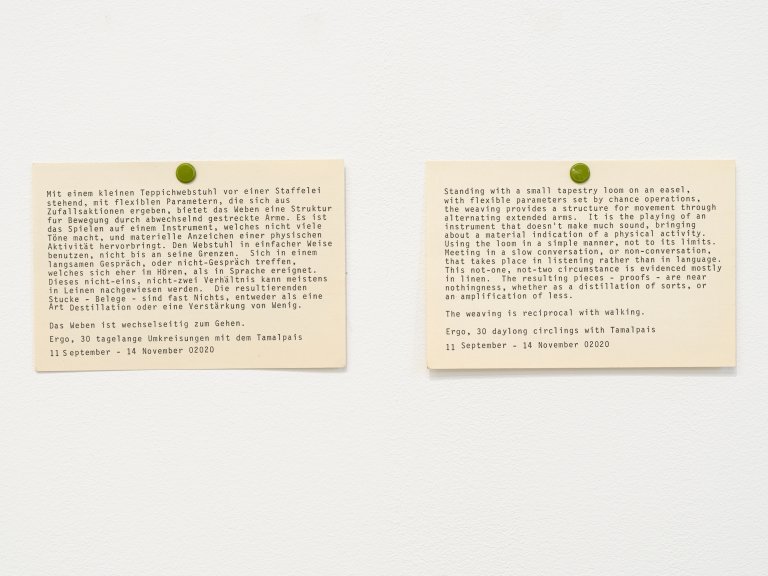 Mit einem kleinen Teppichwebstuhl vor einer Staffelei
stehend, mit flexiblen Parametern, die sich aus
Zufallsaktionen ergeben, bietet das Weben eine Struktur
fur Bewegung durch abwechselnd gestreckte Arme. Es ist
das Spielen auf einem Instrument, welches nicht viele
Töne macht, und materielle Anzeichen einer physischen
Aktivität hervorbringt. Den Webstuhl in einfacher Weise
benutzen, nicht bis an seine Grenzen. Sich in einem
langsamen Gespräch, oder nicht-Gespräch treffen,
welches sich eher im Hören, als in Sprache ereignet.
Dieses nicht-eins, nicht-zwei Verhältnis kann meistens
in Leinen nachgewiesen werden. Die resultierenden
Stucke - Belege - sind fast Nichts, entweder als eine
Art Destillation oder eine Verstärkung von Wenig.
Das Weben ist wechselseitig zum Gehen.
Ergo, 30 tagelange Umkreisungen mit dem Tamalpais
11 September - 14 November 02020
Standing with a small tapestry loom on an easel,
with flexible parameters set by chance operations,
the weaving provides a structure for movement through
alternating extended arms. It is the playing of an
instrument that doesn't make much sound, bringing
about a material indication of a physical activity.
Using the loom in a simple manner, not to its limits.
Meeting in a slow conversation, or non-conversation,
that takes place in listening rather than in language.
This not-one, not-two circumstance is evidenced mostly
in linen. The resulting pieces - proofs - are near
nothingness, whether as a distillation of sorts, or
an amplification of less.
The weaving is reciprocal with walking.
Ergo, 30 daylong circlings with Tamalpais
11 September - 14 November 02020